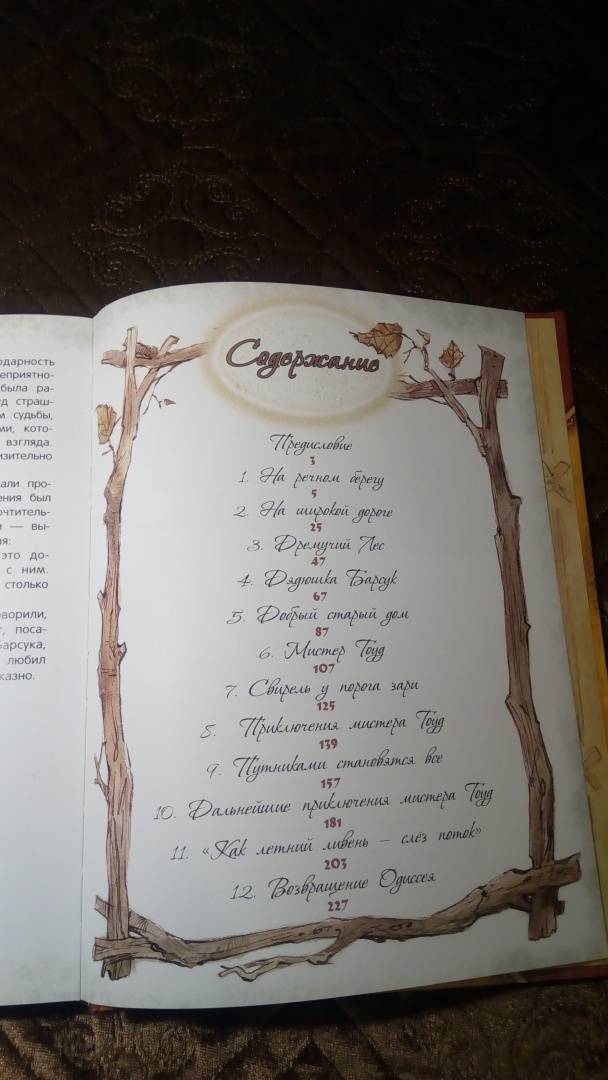 одарность
еприятно-
была ра-
уд страш-
м судьбы,
ми, кото-
взгляда.
изительно
али про-
ения был
очтитель-
и — вы-
ия:
это до-
с ним.
столько
оворили,
т, поса-
Барсука,
любил
казно.
Содержание
Предисловие
3
1. На речном берегу
5
2. На широкой дороге
25
3. Дремучий Лес
47
4. Дядюшка Барсук
67
5. Добрый старый дом
87
6. Мистер Тоуд
107
7. Свирель у порога зари
125
8. Приключения мистера Тоуд
139
9. Путниками становятся все
157
10. Дальнейшие приключения мистера Тоуд
181
11. «Как летний ливень — слёз поток»
203
12. Возвращение Одиссея
227